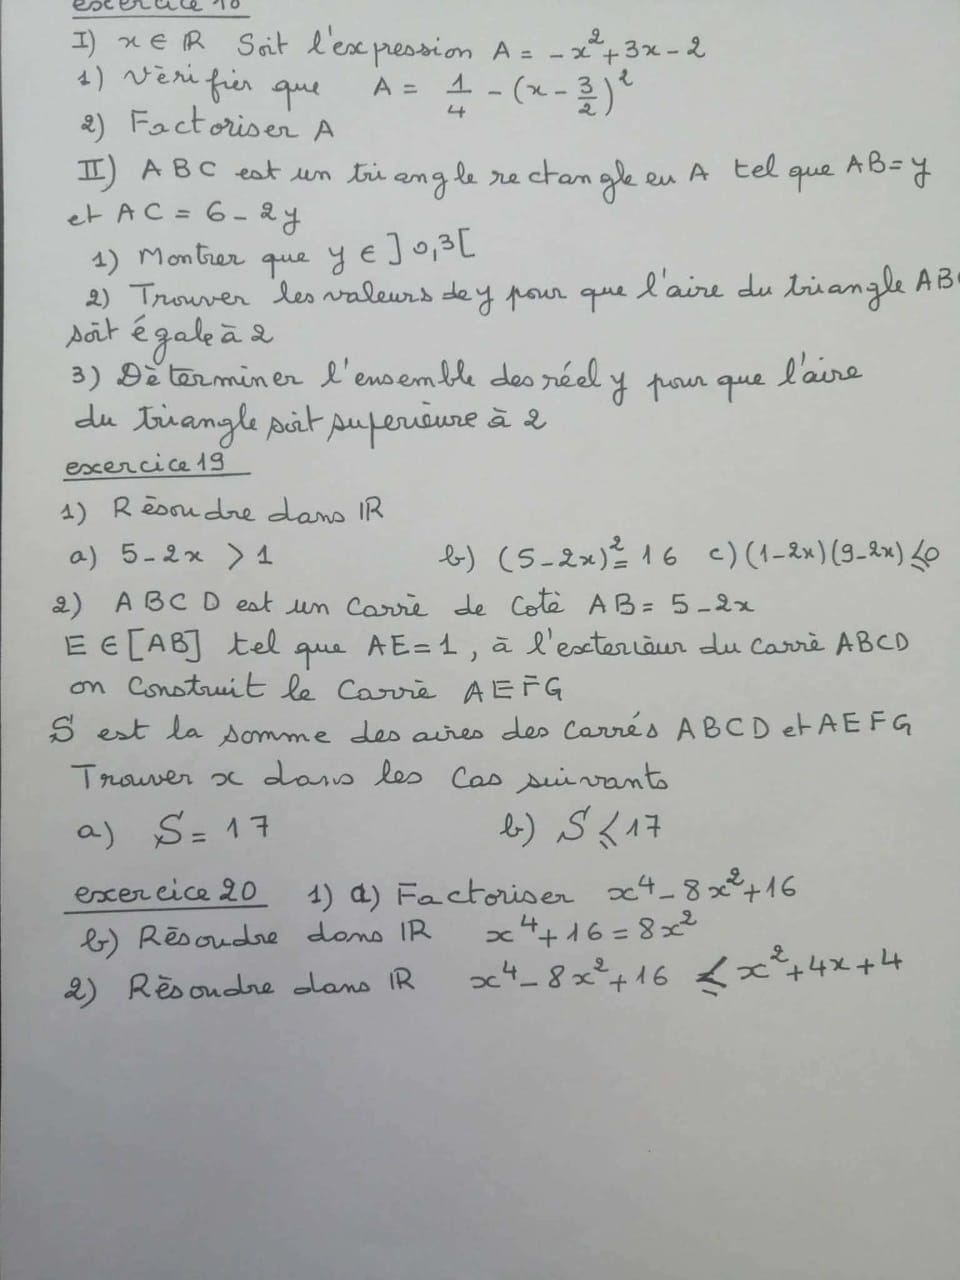 exercice 18
I) x ∈ IR Soit l'expression A = -x² + 3x - 2
1) Vèrifier que A = 1/4 - (x - 3/2)²
2) Factoriser A
II) A B C est un triangle rectangle en A tel que AB = y
et A C = 6 - 2y
1) Montrer que y ∈ ]0,3[
2) Trouver les valeurs de y pour que l'aire du triangle ABC
soit égale à 2
3) Dèterminer l'ensemble des réel y pour que l'aire
du triangle soit superieure à 2
exercice 19
1) Rèsoudre dans IR
a) 5 - 2x > 1 b) (5 - 2x)² = 16 c) (1 - 2x)(9 - 2x) ⩽ 0
2) A B C D est un Carrè de Cotè AB = 5 - 2x
E ∈ [AB] tel que AE = 1, à l'exterieur du carrè ABCD
on Construit le Carrè AEFG
S est la somme des aires des Carrés ABCD et AEFG
Trouver x dans les Cas suivants
a) S = 17 b) S ⩽ 17
exercice 20 1) a) Factoriser x⁴ - 8x² + 16
b) Rèsoudre dans IR x⁴ + 16 = 8x²
2) Rèsoudre dans IR x⁴ - 8x² + 16 ⩽ x² + 4x + 4